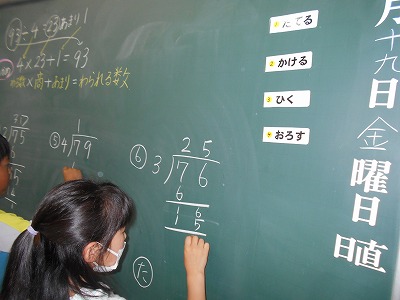 93÷4=23あまり1
4×23+1=93
わる数×商+あまり=わられる数
37
75
⑤ 4)79
1
⑥ 3)76
25
6
16
5
た
① たてる
② かける
③ ひく
④ おろす
月
十九
日
金
曜
日
日直